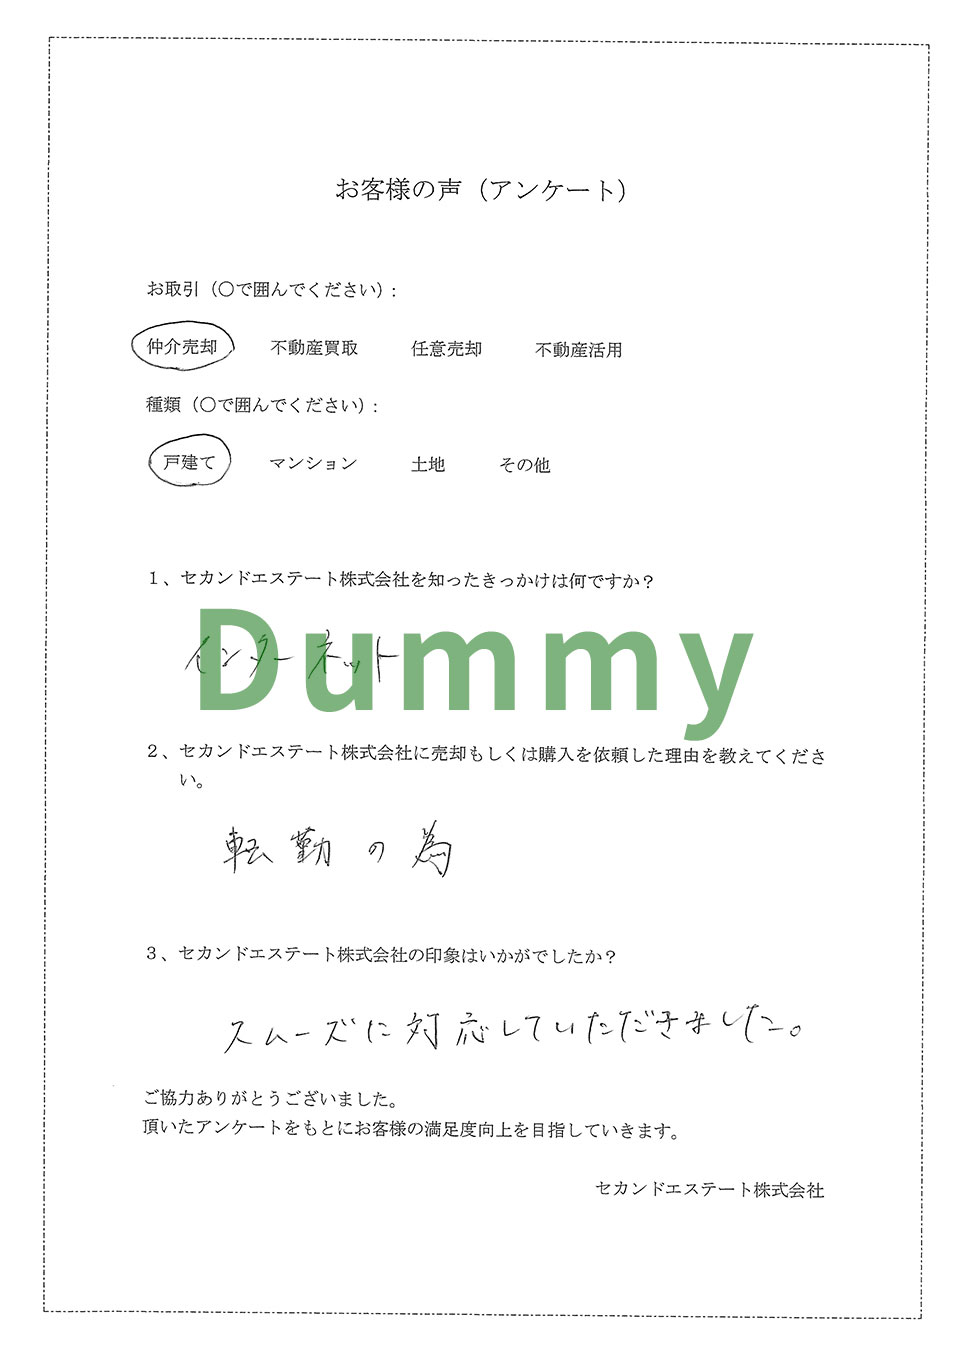 お客様の声（アンケート）
お取引（〇で囲んでください）:
仲介売却 不動産買取 任意売却 不動産活用
種類（〇で囲んでください）:
戸建て マンション 土地 その他
１、セカンドエステート株式会社を知ったきっかけは何ですか？
インターネット
Dummy
２、セカンドエステート株式会社に売却もしくは購入を依頼した理由を教えてくださ
い。
転勤の為
３、セカンドエステート株式会社の印象はいかがでしたか？
スムーズに対応していただきました。
ご協力ありがとうございました。
頂いたアンケートをもとにお客様の満足度向上を目指していきます。
セカンドエステート株式会社